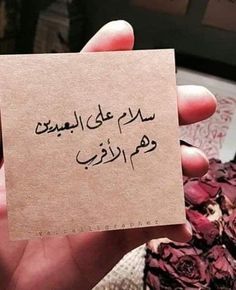 سلام على البعيدين
وهم الأقرب